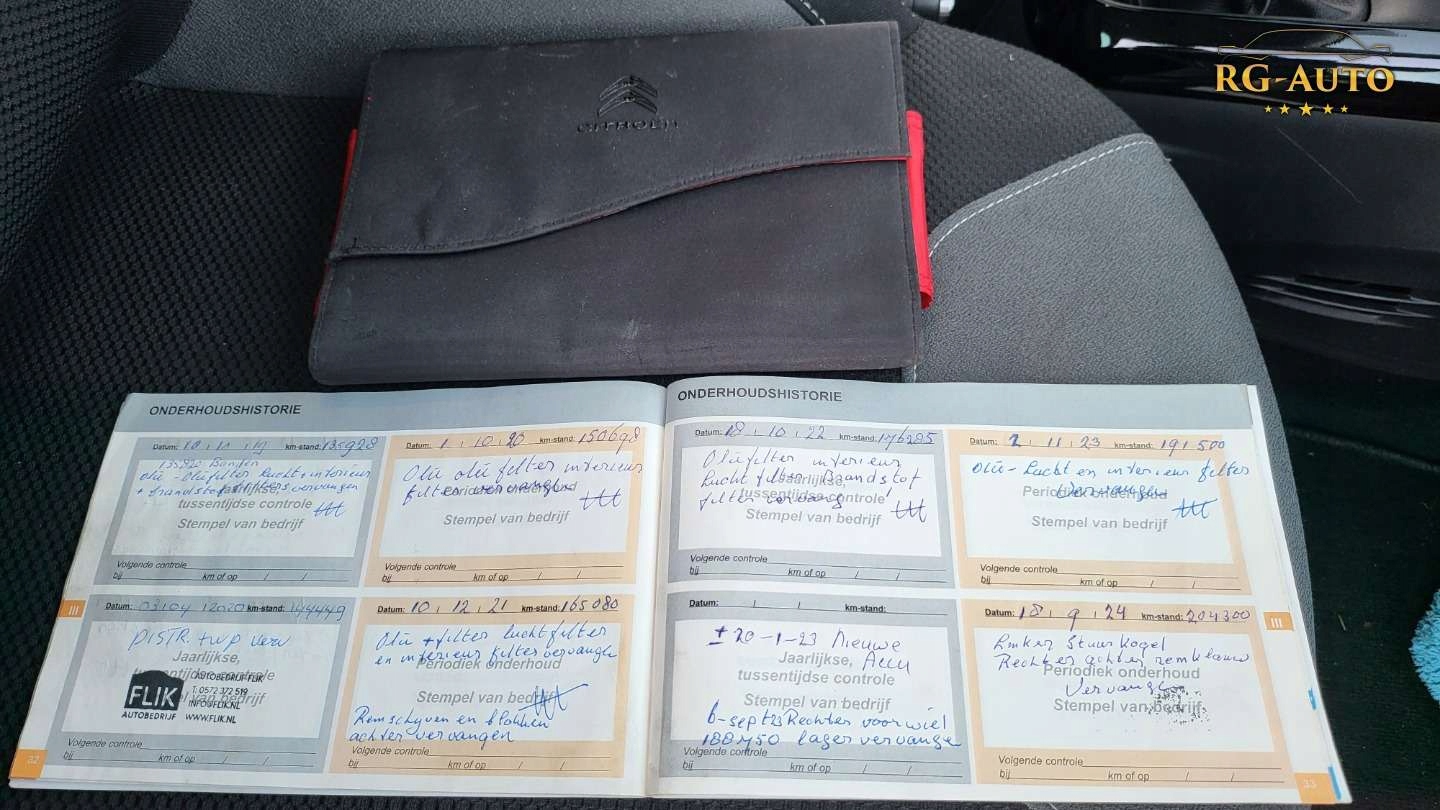 RG-AUTO
CITROËN
ONDERHOUDSHISTORIE
Datum: 10 , 11 , 19 km-stand: 135928
Banden
olie - Oliefilter Lucht + interieur
+ brandstof filters vervangen
Jaarlijkse,
tussentijdse controle
Stempel van bedrijf
Volgende controle
bij km of op / /
Datum: 1 , 10 , 20 km-stand: 150698
Olie oliefilter interieur
filter vervangen
Periodiek onderhoud
Stempel van bedrijf
Volgende controle
bij km of op / /
III
Datum: 03/04 / 2020 km-stand: 144449
DISTR. + wp verv
Jaarlijkse,
tussentijdse controle
Stempel van bedrijf
FLIK
AUTOBEDRIJF
AUTOBEDRIJF FLIK
T: 0572 372 519
INFO@FLIK.NL
WWW.FLIK.NL
Volgende controle
bij km of op / /
Datum: 10 , 12 , 21 km-stand: 165080
Olie + filter luchtfilter
en interieur filter vervangen
Periodiek onderhoud
Stempel van bedrijf
Remschijven en blokken
achter vervangen
Volgende controle
bij km of op / /
32
ONDERHOUDSHISTORIE
Datum: 18 , 10 , 22 km-stand: 176285
Oliefilter interieur
Lucht filter Brandstof
filter vervang
Jaarlijkse,
tussentijdse controle
Stempel van bedrijf
Volgende controle
bij km of op / /
Datum: 2 , 11 , 23 km-stand: 191500
Olie - Lucht en interieur filter
vervangen
Periodiek onderhoud
Stempel van bedrijf
Volgende controle
bij km of op / /
Datum: / / km-stand:
± 20-1-23 Nieuwe
Accu
Jaarlijkse,
tussentijdse controle
Stempel van bedrijf
6-sept 23 Rechter voorwiel
188450 lager vervange
Volgende controle
bij km of op / /
III
Datum: 18 , 9 , 24 km-stand: 204300
Linker Stuurkogel
Rechter achter remklauw
Vervangen
Periodiek onderhoud
Stempel van bedrijf
Volgende controle
bij km of op / /
33